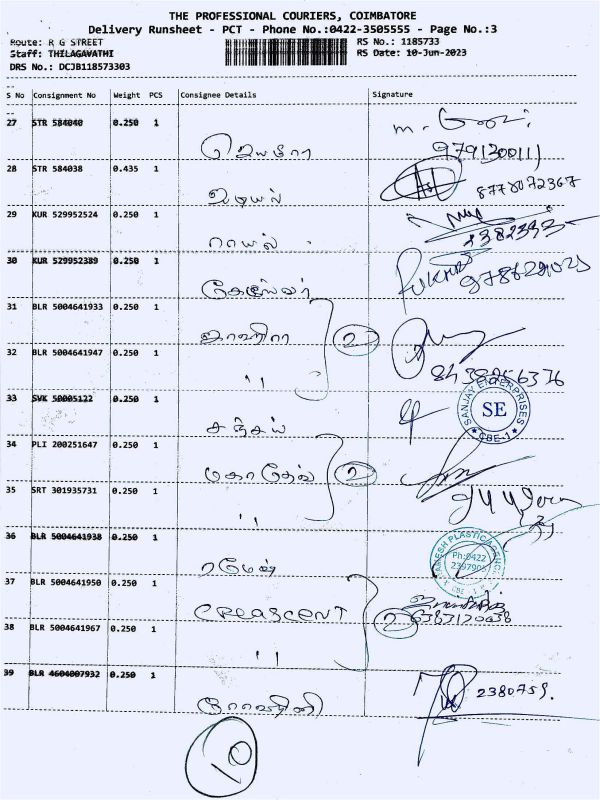 THE PROFESSIONAL COURIERS, COIMBATORE
Delivery Runsheet - PCT - Phone No.:0422-3505555 - Page No.:3
Route: R G STREET RS No.: 1185733
Staff: THILAGAVATHI RS Date: 10-Jun-2023
DRS No.: DCJB118573303
S No Consignment No Weight PCS Consignee Details Signature
27 STR 584040 0.250 1
9791300111
28 STR 584038 0.435 1
8778072367
29 KUR 529952524 0.250 1
ராயல்
30 KUR 529952389 0.250 1
31 BLR 5004641933 0.250 1
காவேரி 2
32 BLR 5004641947 0.250 1
"
33 SVK 50005122 0.250 1
சஞ்சய்
SANJAY ENTERPRISES
SE
CBE-1
34 PLI 200251647 0.250 1
மகாதேவ் 2
35 SRT 301935731 0.250 1
"
36 BLR 5004641938 0.250 1
ரமேஷ்
Ph:0422
37 BLR 5004641950 0.250 1
CREASCENT 2
38 BLR 5004641967 0.250 1
"
39 BLR 4604007932 0.250 1
2380759.
10